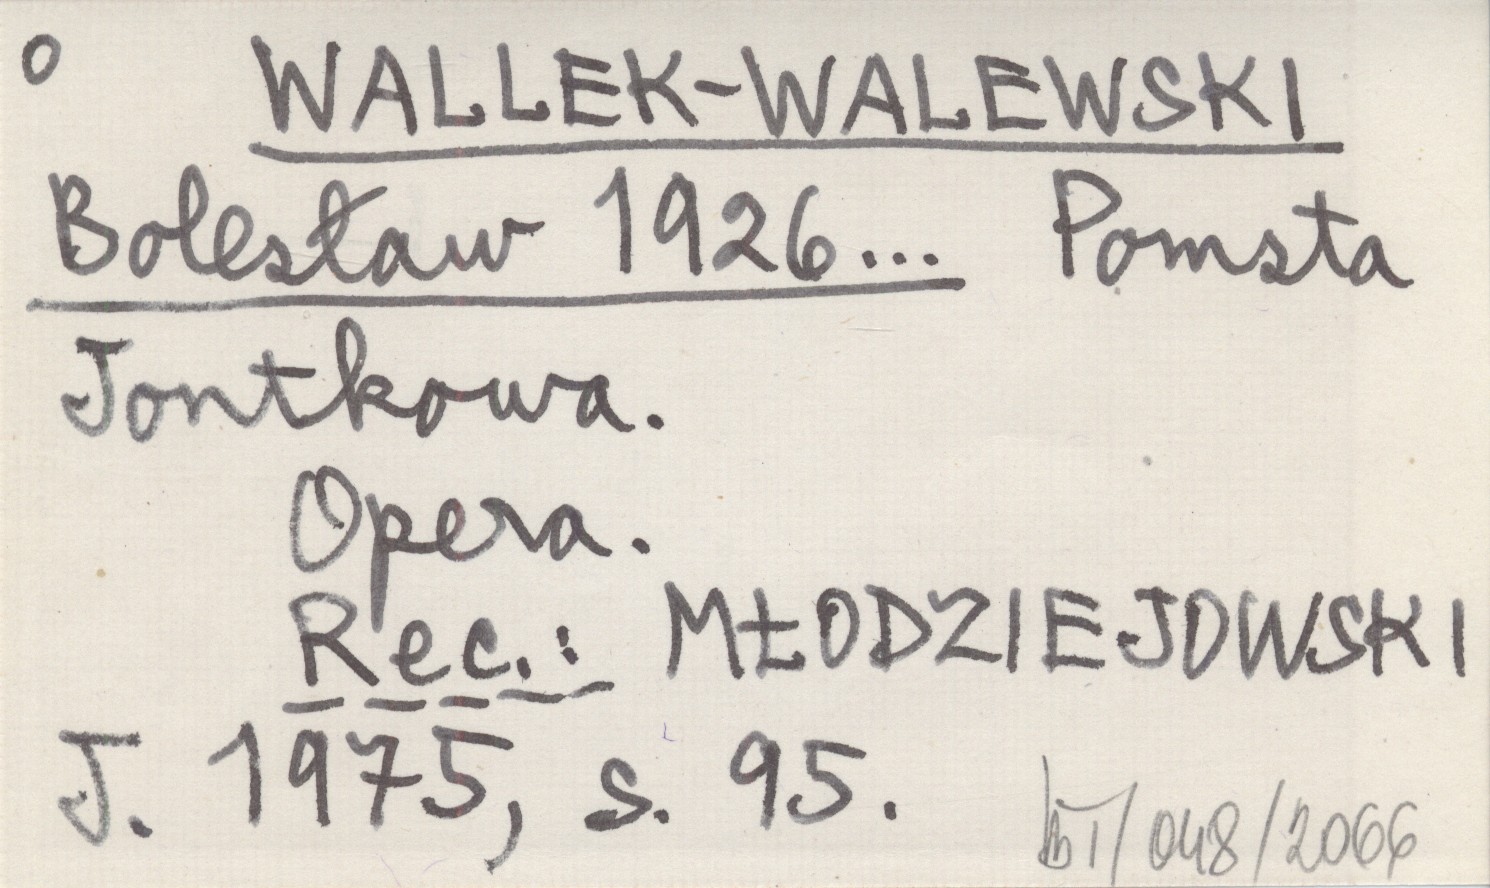 o WALLEK-WALEWSKI
Bolesław 1926... Pomsta
Jontkowa.
Opera.
Rec.: MŁODZIEJOWSKI
J. 1975, s. 95.
/048/2066